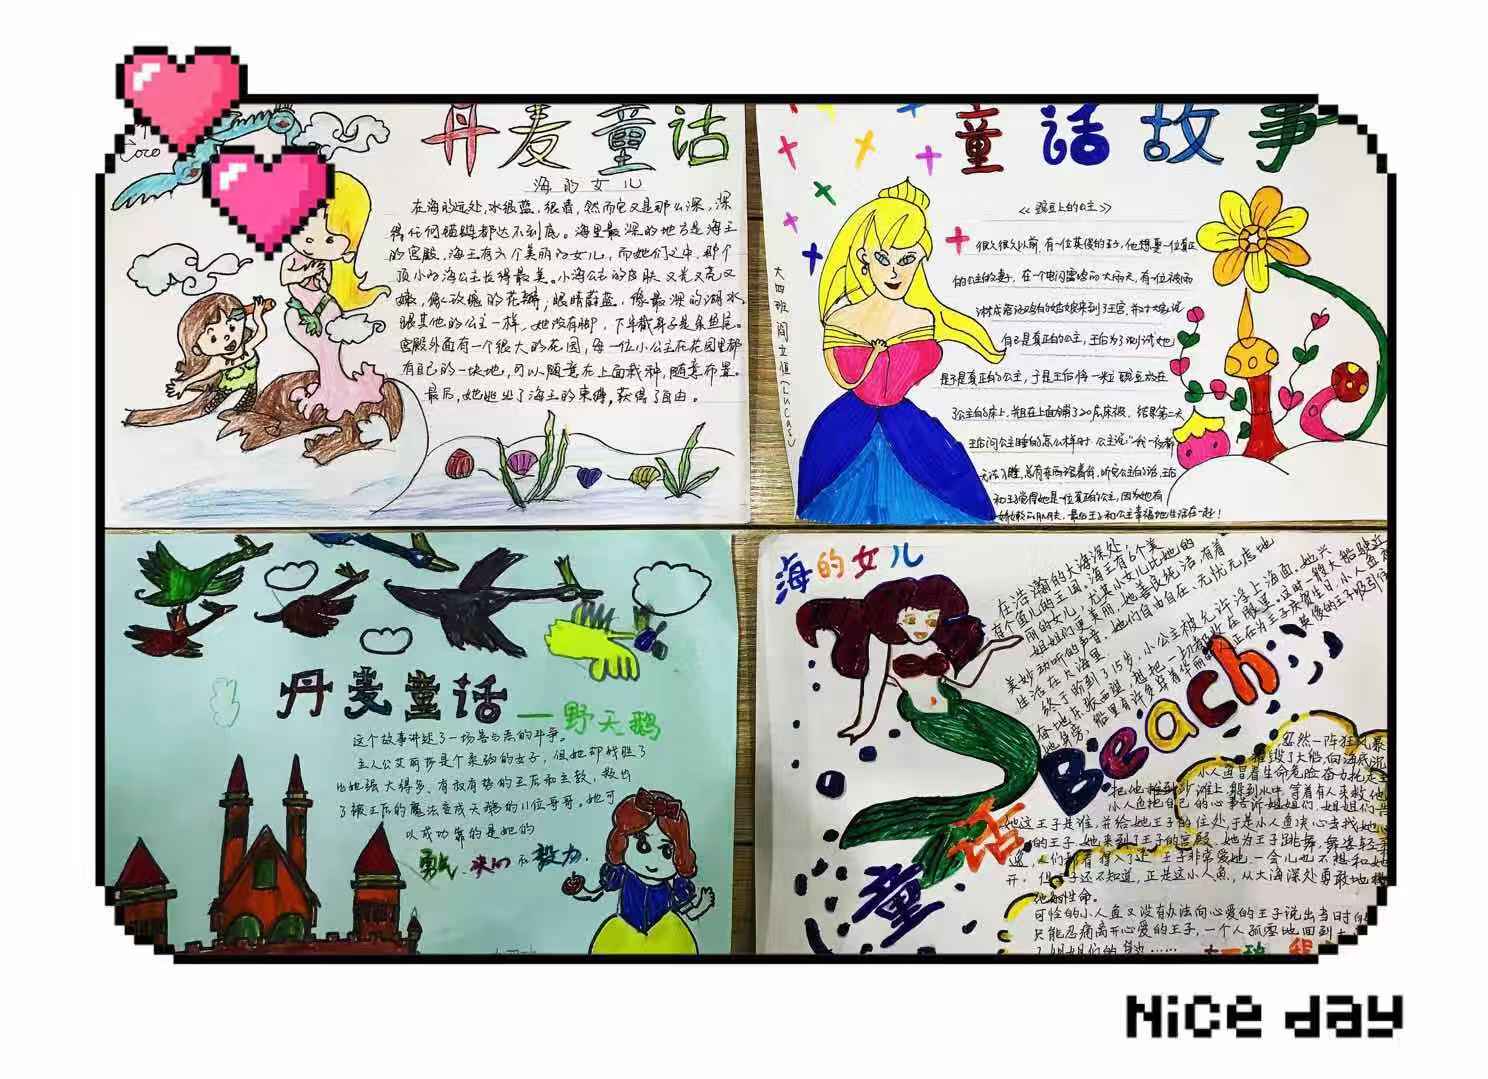 Coco
丹麦童话
海的女儿
在海的远处,水很蓝,很清,然而它又是那么深,深
得任何锚链都达不到底。海里最深的地方是海王
的宫殿,海王有六个美丽的女儿,而她们之中,那个
顶小的海公主长得最美。小海公主的皮肤又光又亮又
嫩,像玫瑰的花瓣,眼睛蔚蓝,像最深的湖水。
跟其他的公主一样,她没有脚,下半截身子是条鱼尾。
宫殿外面有一个很大的花园,每一位小公主在花园里都
有自己的一块地,可以随意在上面栽种,随意布置。
最后,她逃出了海王的束缚,获得了自由。
童话故事
《豌豆上的公主》
很久很久以前,有一位英俊的王子,他想要一位真正
的公主做妻子,在一个电闪雷鸣的大雨天,有一位被雨
自己是真正的公主,王后为了测试她
是不是真正的公主,于是王后将一粒豌豆放在
了公主的床上,并且在上面铺了20层床被,结果第二天
王后问公主睡的怎么样时 公主说:"我一夜都
和王子觉得她是一位真正的公主,因为她有
娇嫩的肌肤,最后王子和公主幸福地生活在一起!
大四班 闫立恒(Lucas)
丹麦童话—野天鹅
这个故事讲述了一场善与恶的斗争。
主人公艾丽莎是个柔弱的女子,但她却战胜了
比她强大得多、有权有势的王后和主教,救出
了被王后的魔法变成天鹅的11位哥哥。她可
以成功靠的是她的
勇气、决心和毅力.
海的女儿
在浩瀚的大海深处
有个鱼儿的王国,海王有6个美
丽的女儿,尤其小女儿比她的
姐姐们更美丽,她善良纯洁,有着
美妙动听的声音,她们自由自在、无忧无虑地
生活在大海里。
终于盼到了15岁,小公主被允许浮上海面,她兴
Beach
忽然一阵狂风暴
摧毁了大船,向海底沉
小人鱼冒着生命危险奋力托起王
把他推到沙滩上,躲到水中,等着有人来救他
小人鱼把自己的心事告诉姐姐们,姐姐们告
她这王子是谁,并给她王子的住处,于是小人鱼决心去找她心
的王子,她来到了王子的宫殿,她为王子跳舞,舞姿轻
开,但王子还不知道,正是这小人鱼,从大海深处勇敢地
他的性命。
可怜的小人鱼又没有办法向心爱的王子说出当时的
只能忍痛离开心爱的王子,一个人孤零地回到
了姐姐们的身边……
童话
Nice day